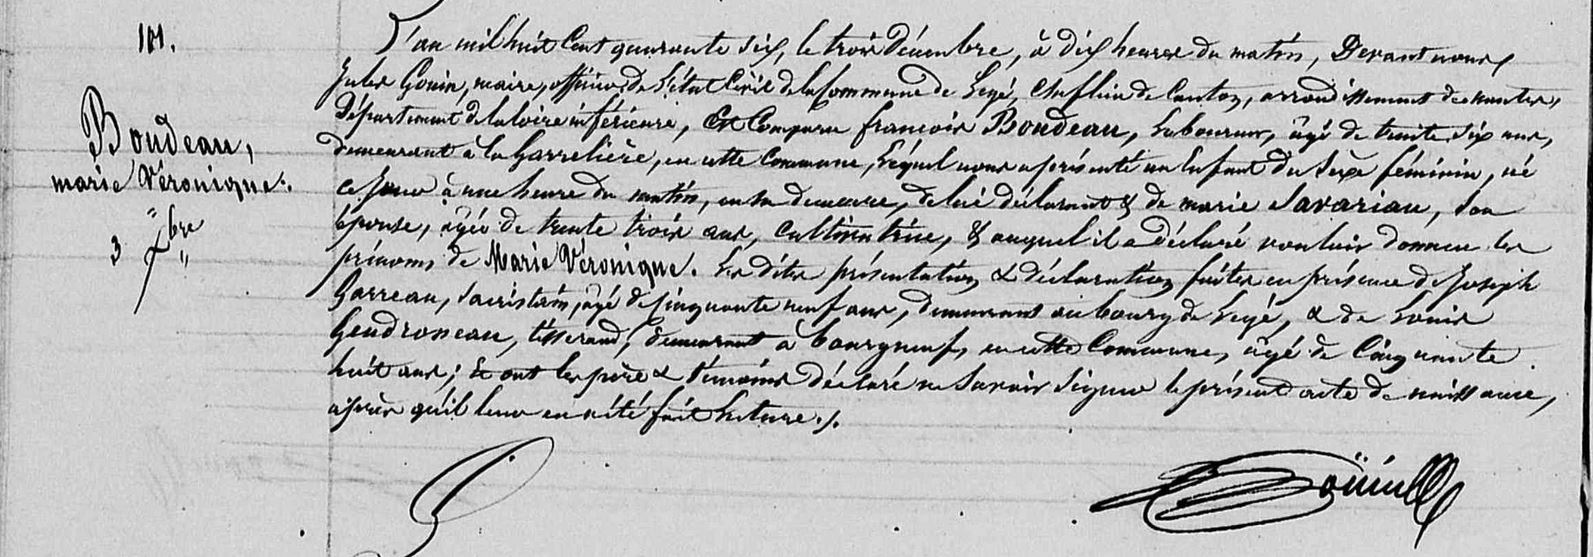 101.
Boudeau,
marie Véronique.
3 Xbre
L'an mil huit Cent quarante six, le trois Décembre, à dix heures du matin, Devant nous
Jules Gouin, maire, officier de l'état Civil de la Commune de Legé, Chef lieu de Canton, arrondissement de nantes,
Département de la loire inférieure, Est Comparu françois Boudeau, Laboureur, âgé de trente six ans,
demeurant à la Garrelière, en cette Commune, Lequel nous a présenté un Enfant du Sexe féminin, né
ce jour à une heure du matin, en sa demeure, de lui déclarant & de marie Savariau, Son
épouse, âgée de trente trois ans, Cultivatrice, & auquel il a déclaré vouloir donner les
prénoms de Marie Véronique. Les dites présentation & déclaration faites en présence de Joseph
Garreau, Sacristain, âgé de Cinquante neuf ans, demeurant au bourg de Legé, & de Louis
Gendroneau, tisserand, demeurant à bourgneuf, en cette Commune, âgé de Cinquante
huit ans; & ont les père & témoins déclaré ne Savoir Signer le présent acte de naissance,
après qu'il leur en a été fait Lecture ./.
Goüin